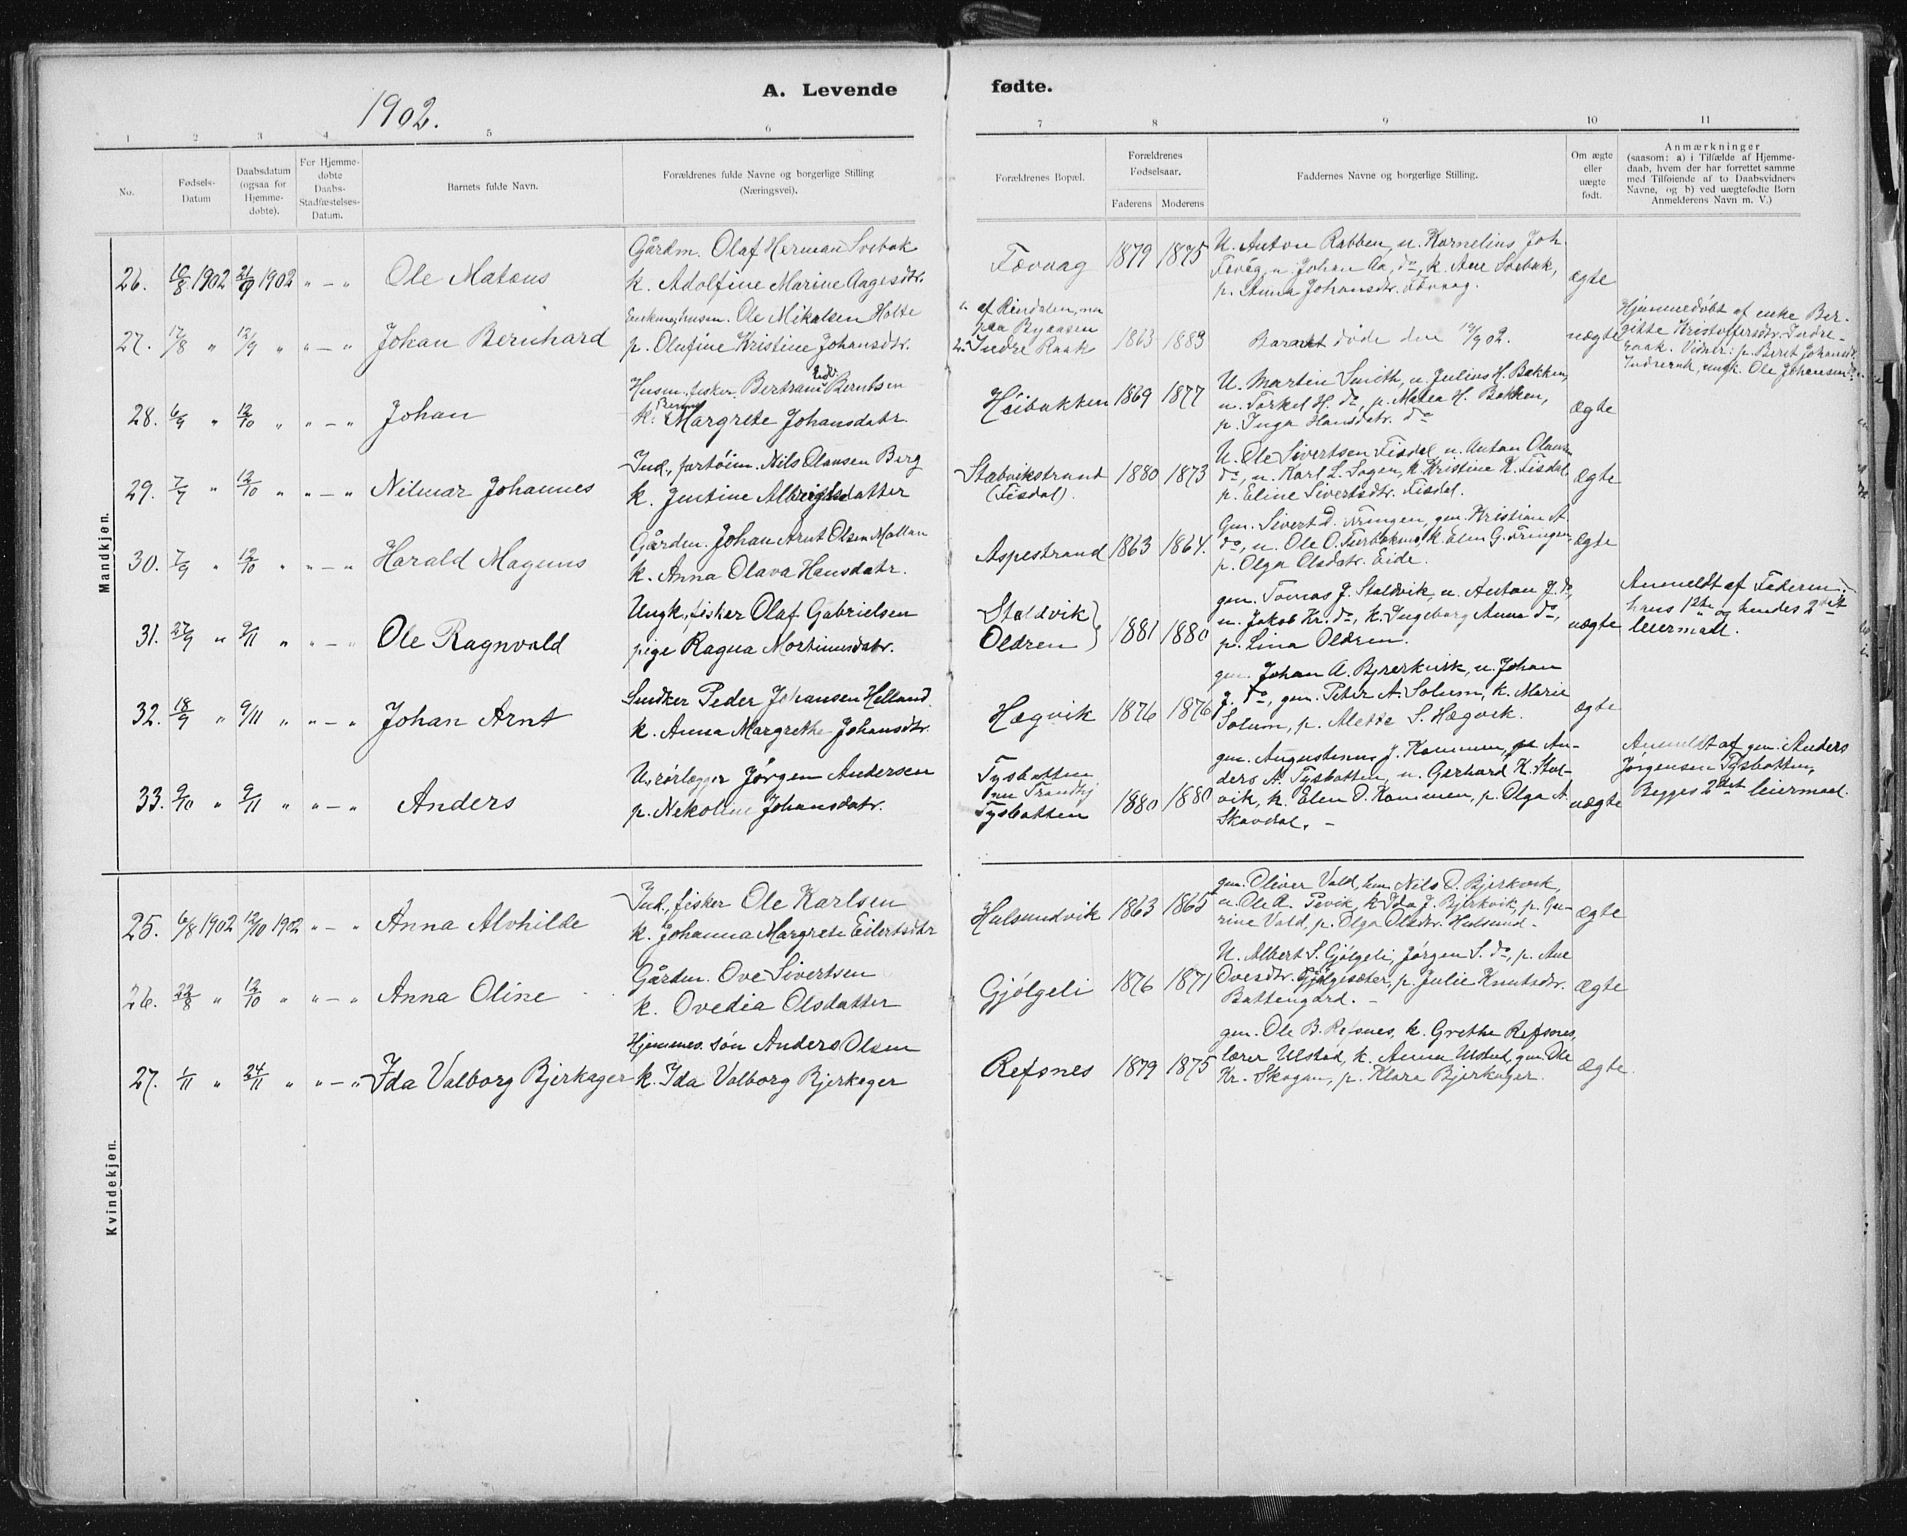 1902.
A. Levende fødte.
1 2 3 4 5 6 7 8 9 10 11
No.
Fødsels-
Datum
Daabsdatum
(ogsaa for
Hjemme-
døbte).
For Hjemme-
døbte
Daabs-
Stadfæstelses-
Datum.
Barnets fulde Navn.
Forældrenes fulde Navne og borgerlige Stilling
(Næringsvei).
Forældrenes Bopæl.
Forældrenes
Fødselsaar.
Faderens Moderens
Faddernes Navne og borgerlige Stilling.
Om ægte
eller
uægte
født.
Anmærkninger
(saasom: a) i Tilfælde af Hjemme-
daab, hvem der har forrettet samme
med Tilføiende af to Daabsvidners
Navne, og b) ved uægtefødte Born
Anmelderens Navn m. V.)
Mandkjøn.
26. 10/8 1902 21/9 1902 " — " Ole Mateus
Gårdm. Olaf Herman Sæbak
k. Adolfine Marine Aagesdtr.
Fævaag 1879 1875
U. Anton Rabben, u. Kornelius Joh.
Fevåg, u. Johan Aa. do, k. Ane Sæbak,
p. Anna Johansdtr. Fevaag.
ægte
27. 17/8 " 12/9 " " — " Johan Bernhard
Enkem, husm. Ole Mikalsen Holte
p. Olufine Kristine Johansdtr.
1. af Rindalen, nu
paa Byaasen
2. Indre Raak
1863 1883
Barnet døde den 19/9 02.
uægte
Hjemmedøbt af enke Ber-
gitte Kristoffersdtr. Indre-
raak. Vidner: p. Beret Johansdtr.
Indreraak, ungk. Ole Johansen do.
28. 6/9 " 12/10 " " — " Johan
Husm. fisker Bertram Eidb. Berntsen
k. Berntine Margrete Johansdatr.
Høibakken 1869 1877
U. Martin Smith, u. Julius H. Bakken,
u. Torkel H. do, p. Maria H. Bakken,
p. Inga Hansdatr. do
ægte
29. 7/9 " 12/10 " " — " Nilmar Johannes
Ind., fartøim. Nils Olausen Berg
k. Justine Albrigtsdatter
Stalvikstrand
(Fisdal).
1880 1873
U. Ole Sivertsen Fisdal, u. Anton Olaus.
do, u. Karl L. Sogen, k. Kristine K. Fisdal
p. Eline Sivertsdtr. Fisdal.
ægte
30. 7/9 " 12/10 " " — " Harald Magnus
Gårdm. Johan Arnt Olsen Mollan
k. Anna Olava Hansdatr.
Aspestrand 1863 1864.
Gm. Sivert D. Fringen, gm. Kristian A.
do, u. Ole O. k. Elen G. Fringen
p. Olga Olsdtr. Eide.
ægte
31. 27/9 " 9/11 " " — " Ole Ragnvald
Ungk, fisker Olaf Gabrielsen
pige Ragna Mortinusdatr.
Staldvik
Oldren
1881 1880
gm. Tomas J. Staldvik, u. Anton J. do
u. Jakob Kr. do, k. Ingeborg Anna do,
p. Lina Oldren.
uægte
Anmeldt af Faderen.
hans 1ste og hendes 2det
leiermaal.
32. 18/9 " 9/11 " " — " Johan Arnt
Snedker Peder Johansen Helland.
k. Anna Margrethe Johansdtr.
Hægvik 1876 1876
gm. Johan A. Bjerkvik, u. Johan
J. do, gm. Peter A. Solum, k. Marie
Solum, p. Mette S. Hægvik.
ægte
33. 9/10 " 9/11 " " — " Anders
U. rørlægger Jørgen Andersen
p. Nekoline Johansdatr.
Tysbotten
nu Trondhj
Tysbotten
1880 1880
gm. Augustinus J. Kammen, An-
ders A. Tysbotten, u. Gerhard K. Stal-
vik, k. Elen D. Kammen, p. Olga A.
Skavdal. —
uægte
Anmeldt af gm. Anders
Jørgensen Tysbotten,
Begges 2det leiermaal.
Kvindekjøn.
25. 6/8 1902 12/10 1902 " — " Anna Alvhilde
Ind., fisker Ole Karlsen
k. Johanna Margrete Eilertsdtr
Hulsundvik 1863 1865
gm. Oliver Vold, hm. Nils D. Bjerkvik,
u. Ole A. Pevik, k. Ida J. Bjerkvik, p. Gu-
rine Vald, p. Olga Olsdtr. Hulsund.
ægte
26. 22/8 " 12/10 " " — " Anna Oline
Gårdm. Ove Sivertsen
k. Ovedia Olsdatter
Gjølgeli 1876 1871
U. Albert S. Gjølgeli, Jørgen S. do, p. Ane
Ovesdtr. Gjølgisæter, p. Julie Knutsdtr.
Bottengård. —
ægte
27. 1/11 " 24/11 " " — " Ida Valborg Bjerkager
Hjemmes. søn Anders Olsen
k. Ida Valborg Bjerkager
Refsnes 1879 1875
gm. Ole B. Refsnes, k. Grethe Refsnes,
lærer Ulstad, k. Anna Ulstad, gm. Ole
Kr. Skogan, p. Klara Bjerkager.
ægte